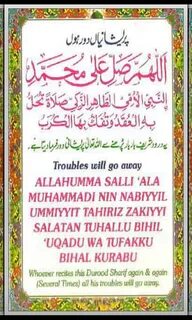 پریشانیاں دور ہوں
اللهم صل على محمد
النبي الأمي الطاهر الزكي صلاة تحل
به العقد وتفك بها الكرب
Troubles will go away
ALLAHUMMA SALLI 'ALA
MUHAMMADI NIN NABIYYIL
UMMIYYIT TAHIRIZ ZAKIYYI
SALATAN TUHALLU BIHIL
'UQADU WA TUFAKKU
BIHAL KURABU
Whoever recites this Durood Sharif again & again
(Several Times) all his troubles will go away.